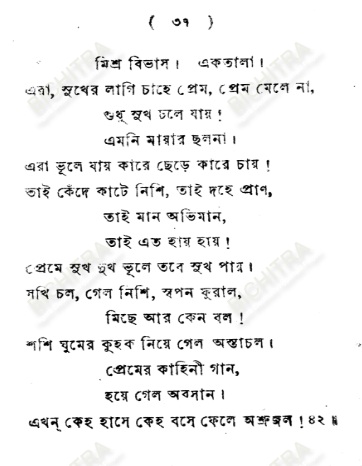 ( ৩৭ )
মিশ্র বিভাস। একতালা।
এরা, সুখের লাগি চাহে প্রেম, প্রেম মেলে না,
শুধু সুখ চলে যায়!
এমনি মায়ার ছলনা।
এরা ভুলে যায় কারে ছেড়ে কারে চায়!
তাই কেঁদে কাটে নিশি, তাই দহে প্রাণ,
তাই মান অভিমান,
তাই এত হায় হায়!
প্রেমে সুখ দুখ ভুলে তবে সুখ পায়।
সখি চল, গেল নিশি, স্বপন ফুরাল,
মিছে আর কেন বল!
শশি ঘুমের কুহক নিয়ে গেল অস্তাচল।
প্রেমের কাহিনী গান,
হয়ে গেল অবসান।
এখন্ কেহ হাসে কেহ বসে ফেলে অশ্রুজল! ৪২॥
BICHITRA
BICHITRA
BICHITRA
BICHITRA
BICHITRA
BICHITRA